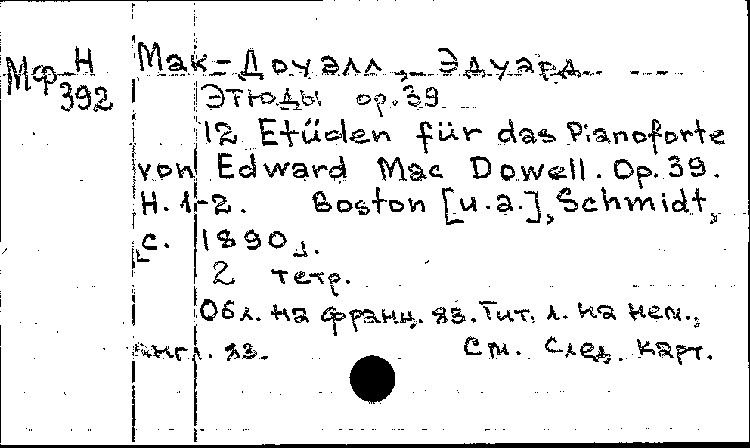 Мф Н
392
Мак-Доуэлл, Эдуард
Этюды ор. 39
12 Etüden für das Pianoforte
von Edward Mac Dowell. Op. 39.
H. 1-2. Boston [u.a.], Schmidt,
[c. 1890].
2 тетр.
Обл. на франц. яз. Тит. л. на нем.,
англ. яз. См. след. карт.